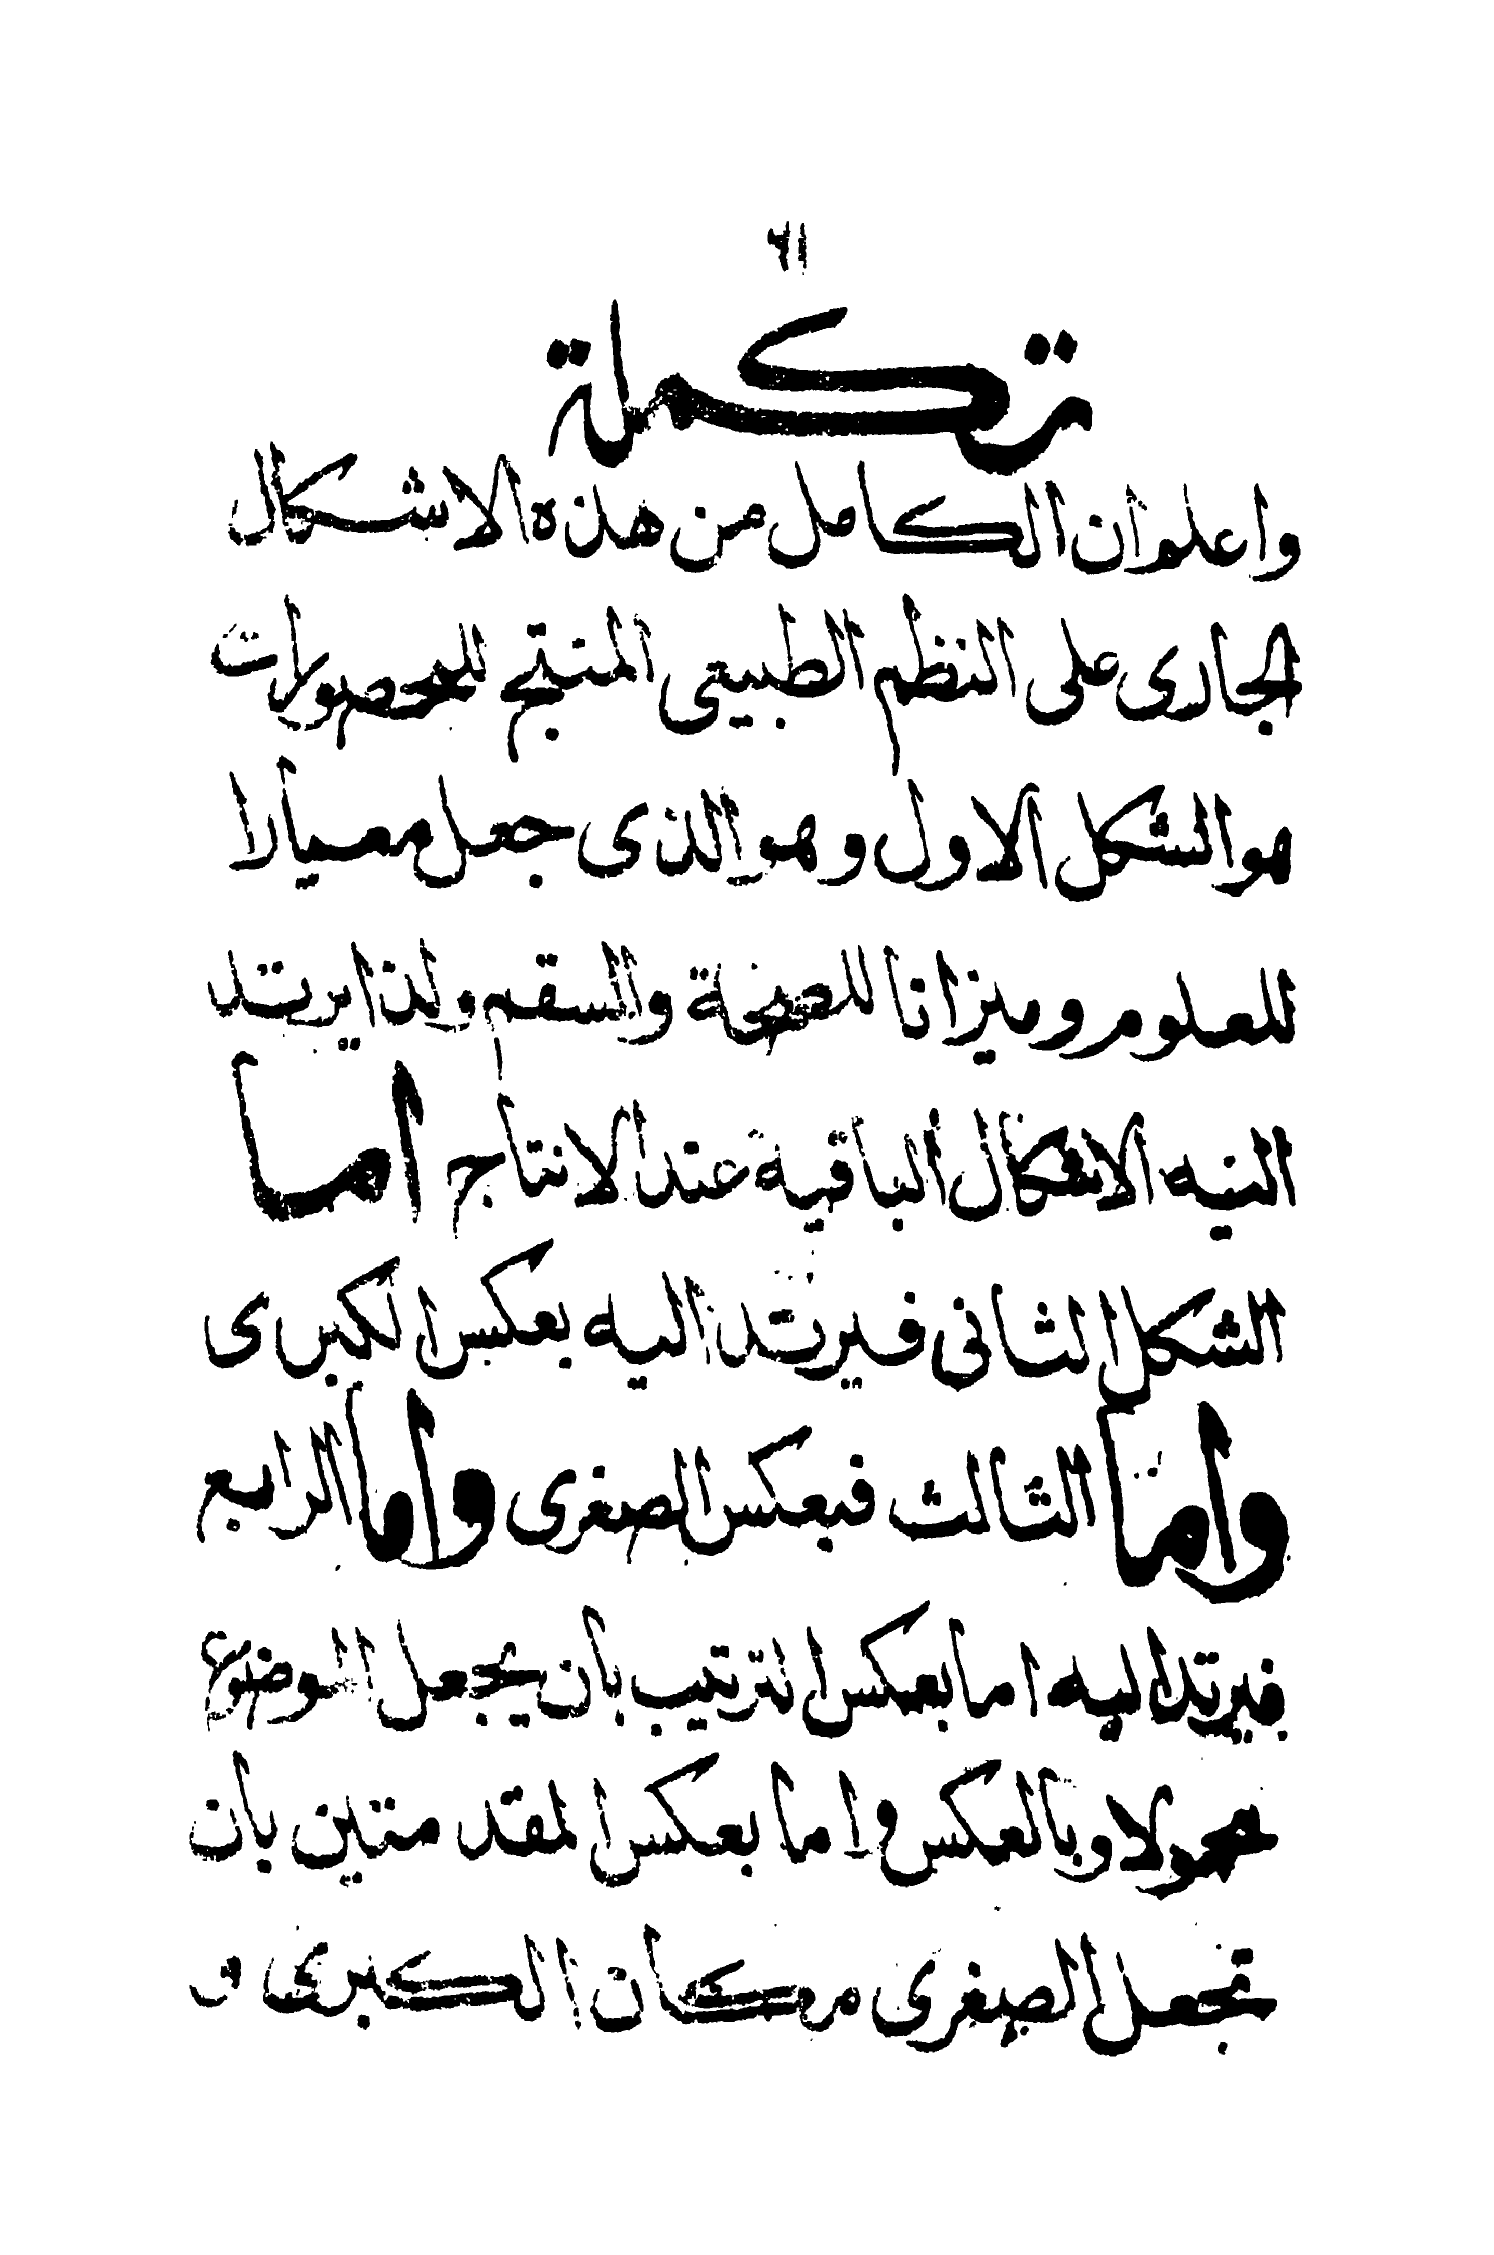 ٦١
تكملة
واعلم ان الكامل من هذه الاشكال
الجارى على النظم الطبيعى المنتج للمحصورات
هو الشكل الاول وهو الذى جعل معيارا
للعلوم وميزانا للصحة والسقم ولذا يرتد
اليه الاشكال الباقية عند الانتاج اما
الشكل الثانى فيرتد اليه بعكس الكبرى
واما الثالث فبعكس الصغرى واما الرابع
فيرتد اليه اما بعكس الترتيب بان يجعل الموضوع
محمولا وبالعكس واما بعكس المقدمتين بان
تجعل الصغرى مكان الكبرى و